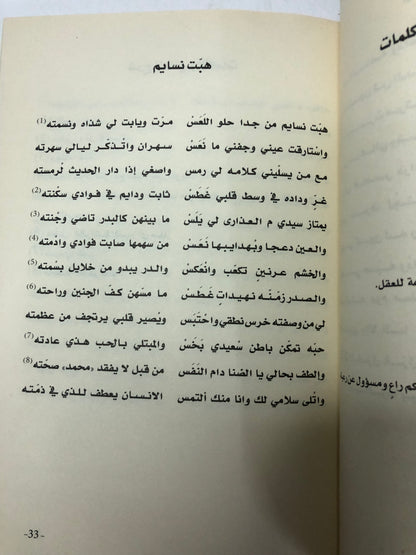 هبّت نسايم
هبّت نسايم من جدا حلو اللعَسْ مرّت ويابت لي شذاه ونسمته(1)
واستارقت عيني وجفني ما نَعَسْ سهران واتذكّر ليالي سهرته
مع من يسلّيني كلامه لي رمس واصغي إذا دار الحديث لرمسته
غزّ وداده في وسط قلبي غَطَسْ ثابت ودايم في فوادي سكْنته(2)
يمتاز سيدي م العذارى لي يَلَسْ ما بينهن كالبدر تاضي وجْنته(3)
والعين دعجا وبْهدايبها نَعَسْ من سهمها صابت فوادي واذمته(4)
والخشم عرنينٍ تكعّب وانْعكسْ والدر يبدو من خلايل بسْمته(5)
والصدر زمّنه نهيداتٍ غَطَسْ ما مسّهن كفّ الجنين وراحته(6)
لي من وصفته خرس نطقي واحْتبَس ويْصير قلبي يرتجف من عظمته
حبّه تمكّن باطن سْعيدي بَخَسْ والمبتلي بالحب هذي عادته(7)
والطف بحالي يا الضنا دام النّفَس من قبل لا يفقد «محمد» صحّته(8)
واتْلى سلامي لك وانا منك ألتمس الانسان يعطف للذي في ذمّته
-33-
كلمات
ة للعقل.
كم راعٍ ومسؤول عن رعيـ